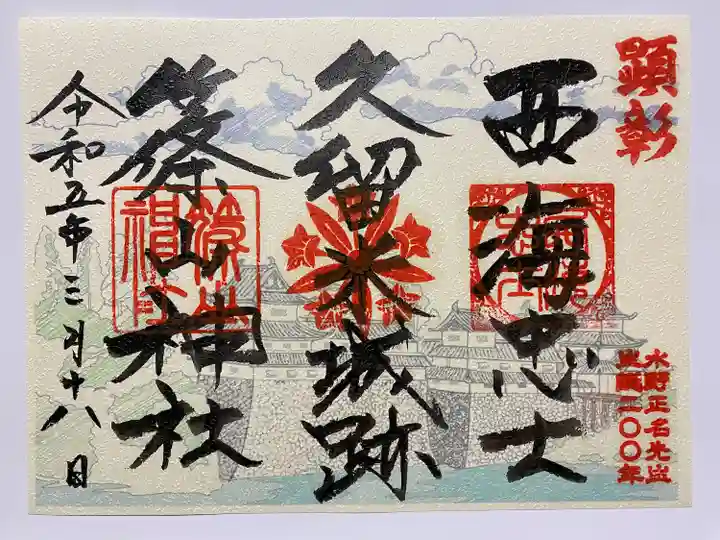 顕彰
西海忠士
水野正名先生
生誕二〇〇年
久留米城跡
篠山神社
篠山
神社
令和五年三月十八日